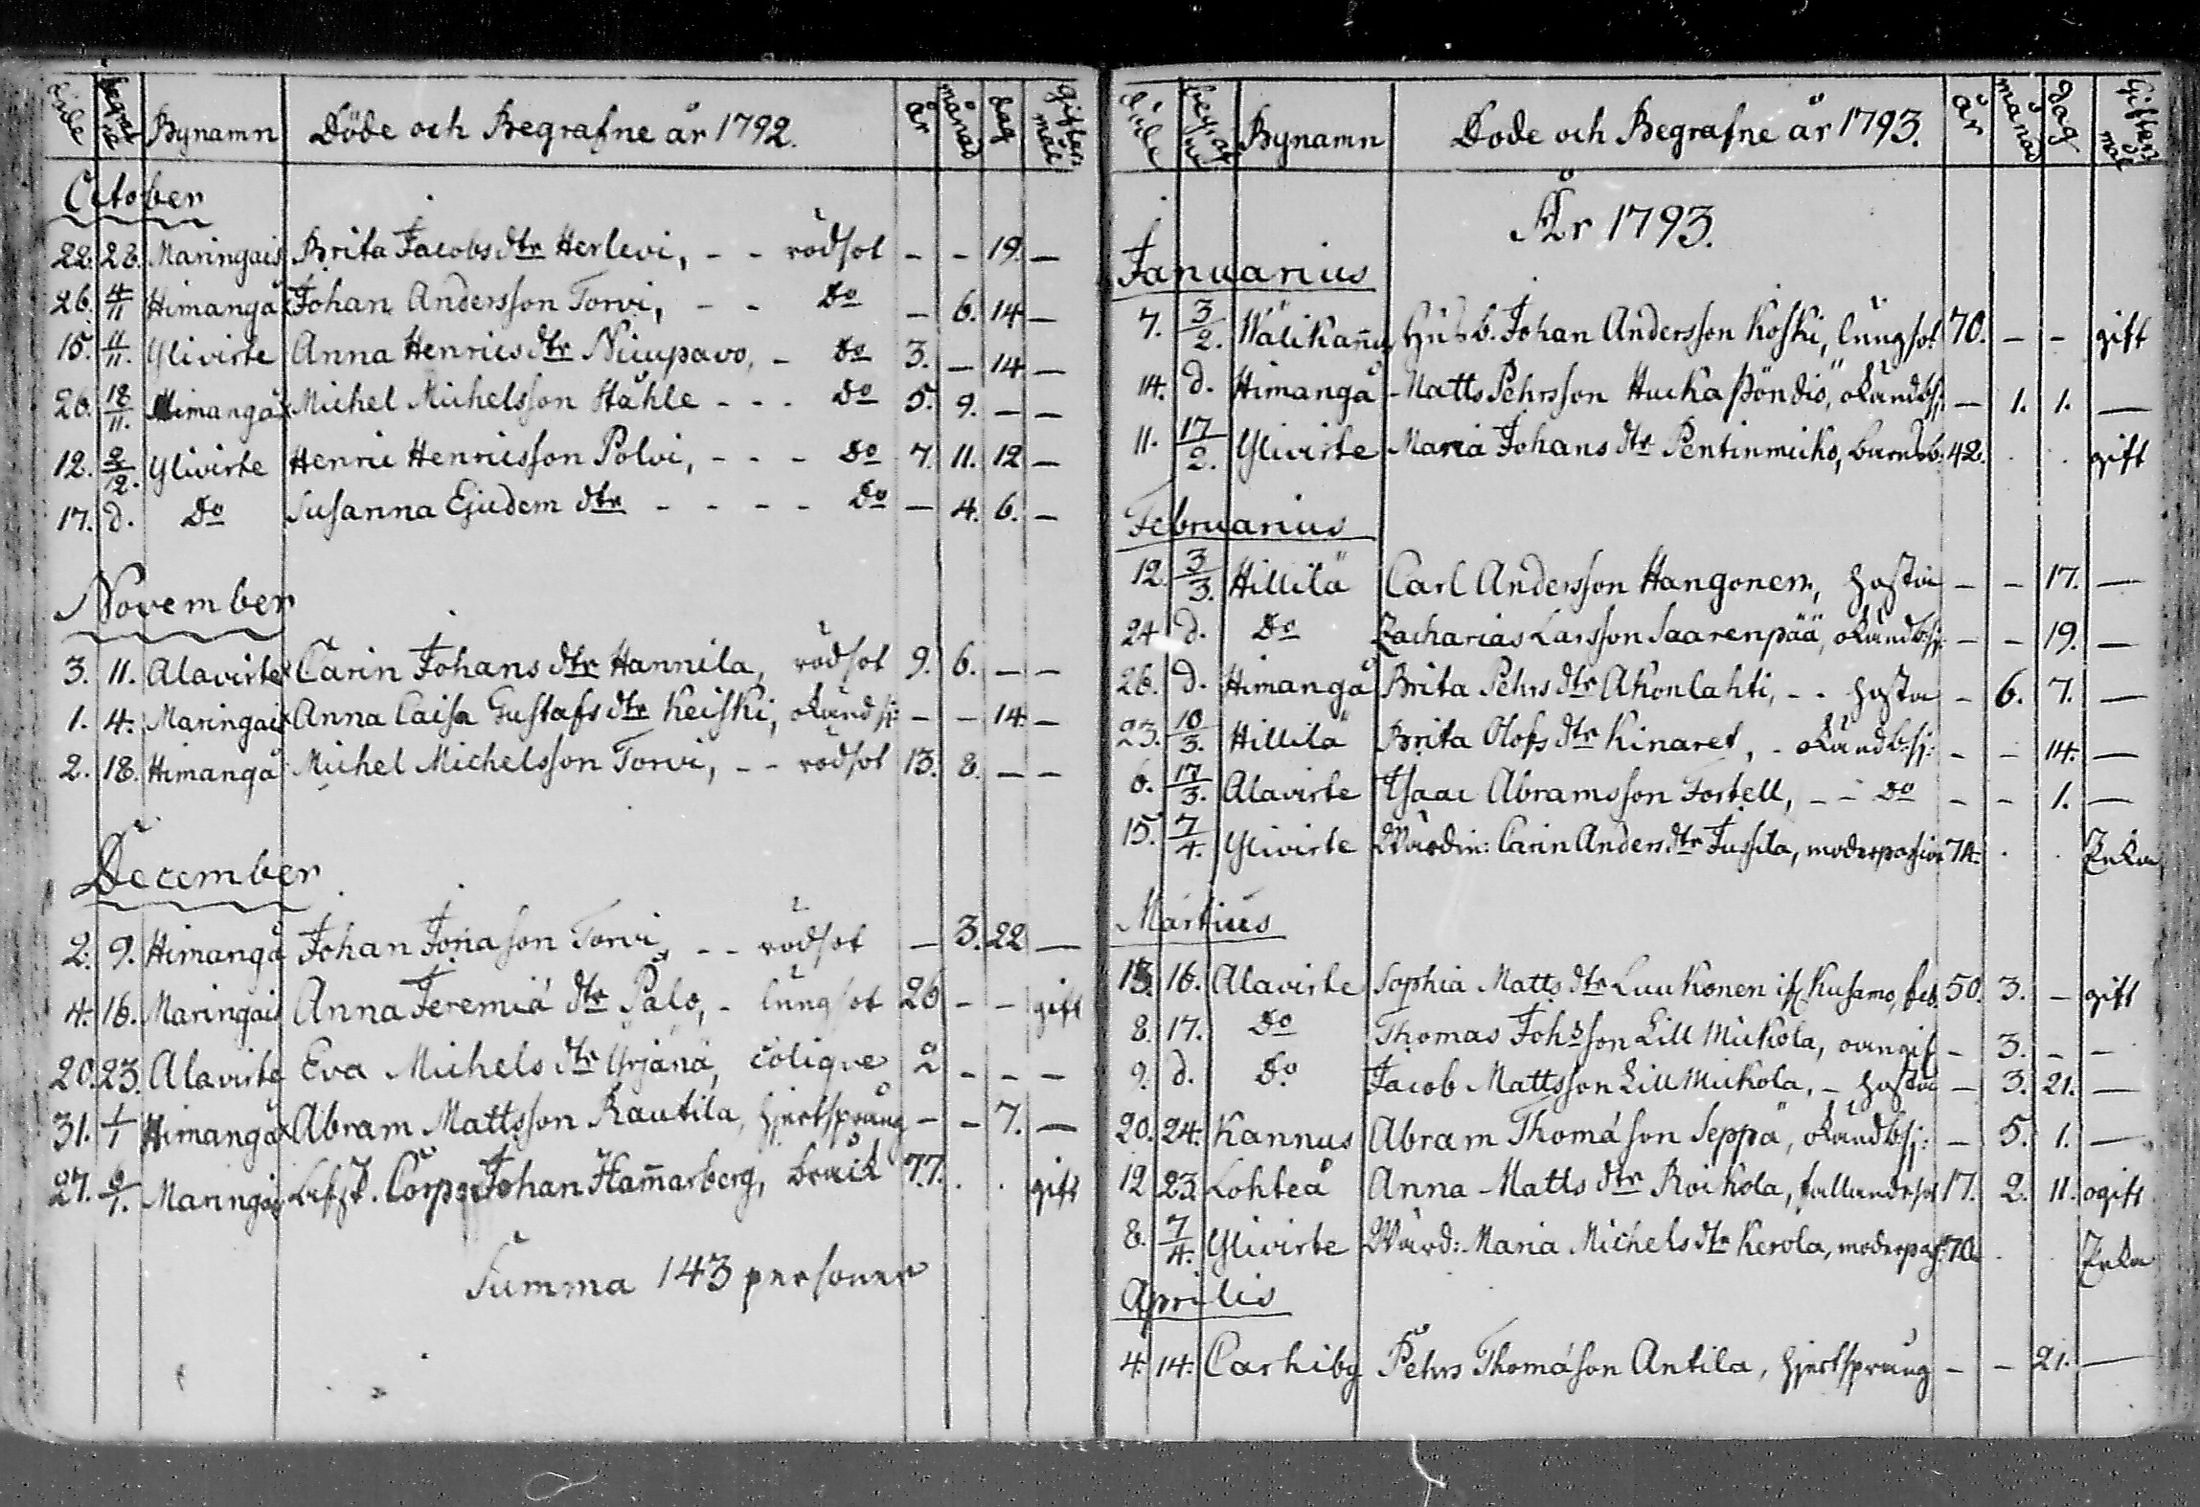 döde begrafne Bynamn Döde och Begrafne år 1792. år månad dag giftermål
October
22. 28. Maringais Brita Jacobs dtr Herlevi, - - rödsot - - 19. -
26. 4/11 Himangå Johan Andersson Torvi, - - Do - 6. 14 -
15. 11/11. Ylivirte Anna Henrics dtr Niicupavo, - Do 3. - 14 -
26. 18/11. Himangå Michel Michelsson Ståhle - - - Do 5. 9. - -
12. 2/12. Ylivirte Henric Henricsson Polvi, - - - Do 7. 11. 12 -
17. d. Do Susanna Ejudem dtr - - - - Do - 4. 6. -
November
3. 11. Alavirte Carin Johans dtr Hannila, rödsot 9. 6. - -
1. 4. Maringais Anna Caisa Gustafs dtr Keiski, okänd sj: - - 14 -
2. 18. Himangå Michel Michelsson Torvi, - - rödsot 13. 8. - -
December
2. 9. Himangå Johan Jonason Torvi, - - rödsot - 3. 22 -
4. 16. Maringais Anna Jeremiæ dtr Palo, - lungsot 26 - - gift
20. 23. Alavirte Eva Michels dtr Yrjänä, colique 2 - - -
31. 1/1 Himangå Abram Mattsson Rautila, hjertsprång - - 7. -
27. 6/1. Maringais Afsk. Corp. Johan Ham̅arberg, bråck 77. . . gift
Summa 143 personer
döde begrafne Bynamn Döde och Begrafne år 1793. år månad dag Giftermål
År 1793.
Januarius
7. 3/2. Wälikan̅us Husb. Johan Andersson Koski, lungsot 70. - - gift
14. d. Himangå Matts Pehrsson Hucka Pöndiö, okändsj: - 1. 1. -
11. 17/2. Ylivirte Maria Johans dtr Pentinmicko, barnsb. 42. . . gift
Februarius
12. 3/3. Hillilä Carl Andersson Hangonen, hosta - - 17. -
24 d. Do Zacharias Larsson Saarenpää, okändsj: - - 19. -
26. d. Himangå Brita Pehrs dtr Akonlahti, - - hosta - 6. 7. -
23. 10/3. Hillilä Brita Olofs dtr Kinaret, - okändsj: - - 14. -
6. 17/3. Alavirte Isaac Abramsson Fortell, - - Do - - 1. -
15. 7/4. Ylivirte Wärdin: Carin Anders dtr Jussila, moderpassion 74. . . Enka
Martius
13. 16. Alavirte Sophia Matts dtr Luukonen if. Kusamo, feb. 50. 3. - gift
8. 17. Do Thomas Johsson Lill Mickola, - 3. - -
9. d. Do Jacob Mattsson Lill Mickola, - hosta - 3. 21. -
20. 24. Kannus Abram Thomæson Seppä, okändsj: - 5. 1. -
12 23. Lohteå Anna Matts dtr Roikola, fallandesot 17. 2. 11. ogift
8. 7/4. Ylivirte Wärd: Maria Michels dtr Kerola, moderpass: 70. . . Enka
Aprilis
4. 14. Carhiby Pehrs Thomæson Antila, hjertsprång - - 21. -